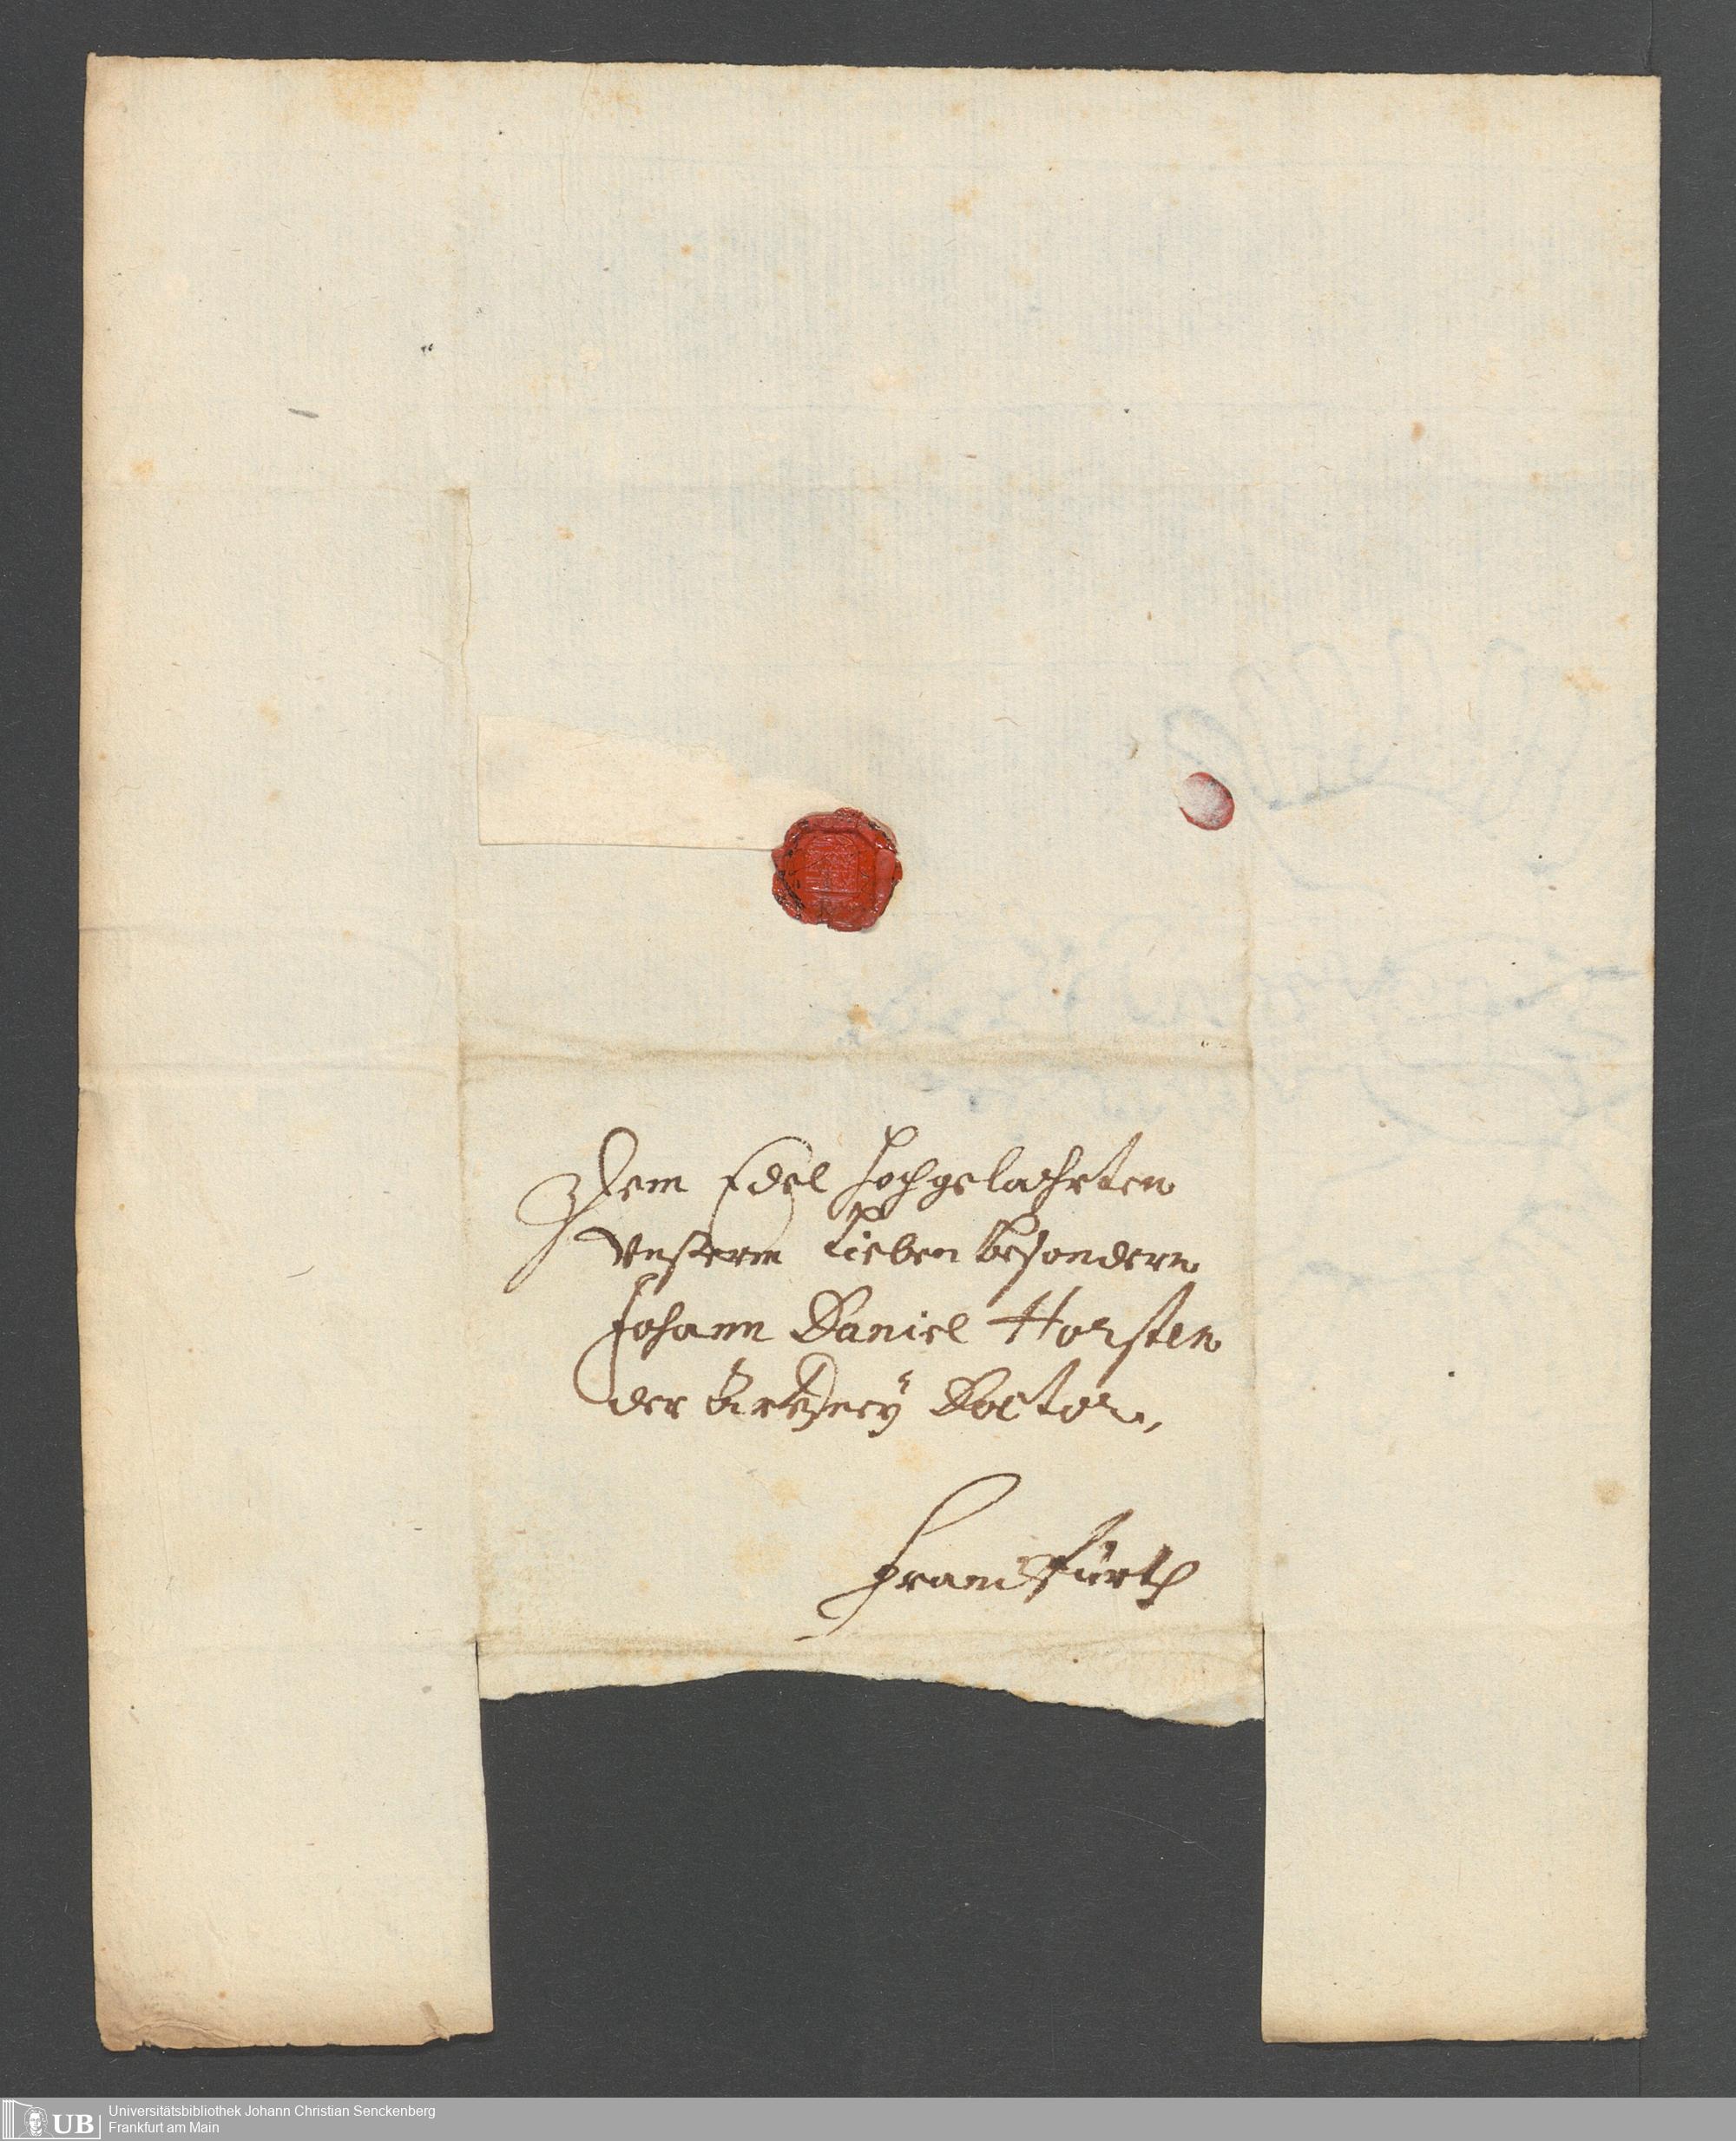 Dem Edel hochgelahrten
Unserm lieben besondern
Johann Daniel Horsten
der Artzney Doctor,
Franckfürth
UB
Universitätsbibliothek Johann Christian Senckenberg
Frankfurt am Main